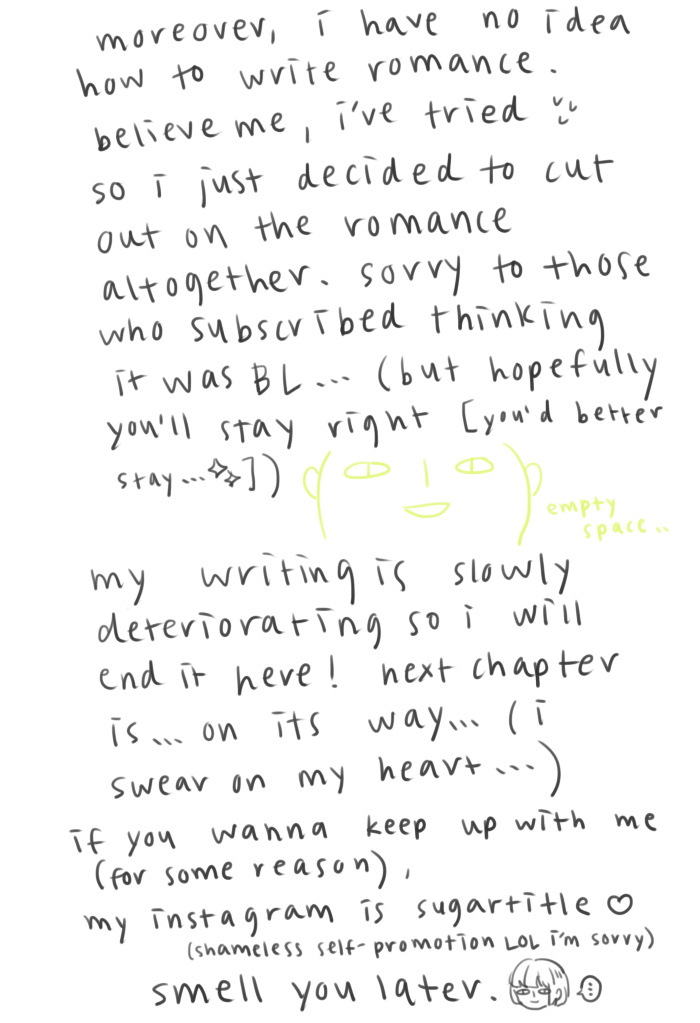 moreover, i have no idea
how to write romance.
believe me, i've tried
so i just decided to cut
out on the romance
altogether. sorry to those
who subscribed thinking
it was BL... (but hopefully
you'll stay right [you'd better
stay...])
empty
space..
my writing is slowly
deteriorating so i will
end it here! next chapter
is... on its way... (i
swear on my heart...)
if you wanna keep up with me
(for some reason),
my instagram is sugartitle ♡
(shameless self-promotion LOL i'm sorry)
smell you later.